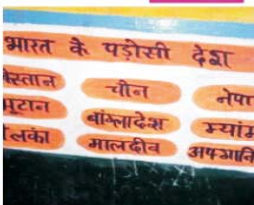 भारत के पड़ोसी देश
कस्तान चीन नेपा
भूटान बांग्लादेश म्यांम
लंका मालदीव अफगानि